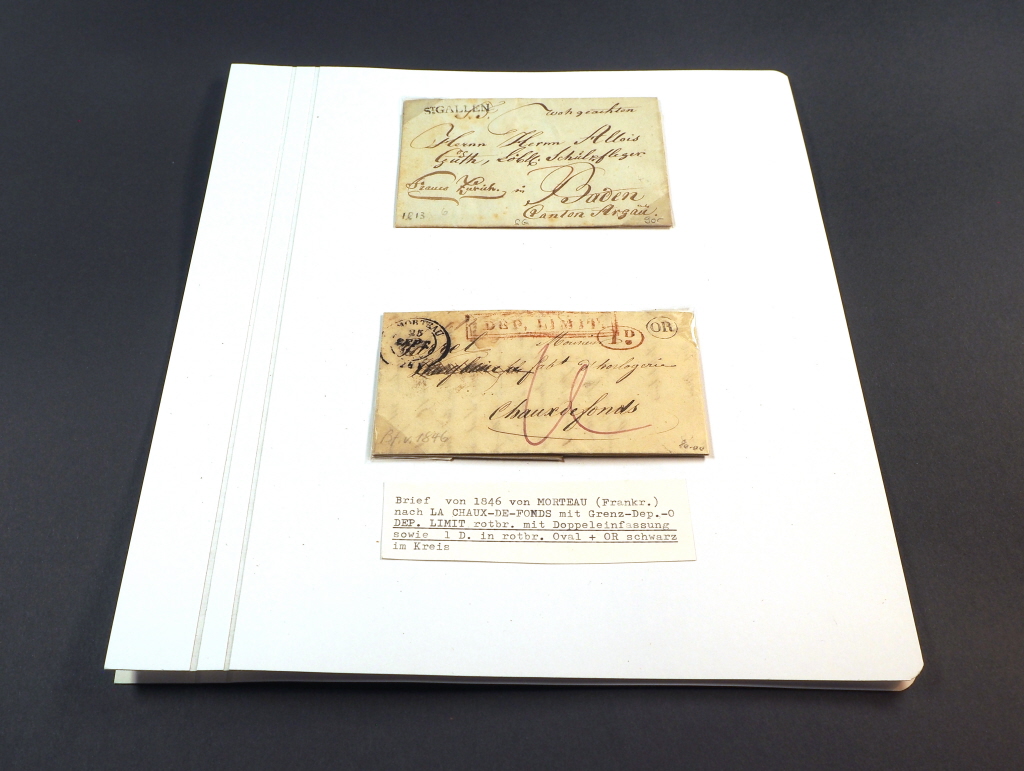 St GALLEN
Wohgeachten
Herrn Herrn Allois
Guth, Löbl. Schülpfleger
Zurich. in Baden
Canton Argäu.
1813
MORTEAU
25
SEPT
DEP. LIMIT.
1.D.
OR
Monsieur
fabt d'horlogerie
Chauxdefonds
Bf. v. 1846
Brief von 1846 von MORTEAU (Frankr.)
nach LA CHAUX-DE-FONDS mit Grenz-Dep.-O
DEP. LIMIT rotbr. mit Doppeleinfassung
sowie 1 D. in rotbr. Oval + OR schwarz
im Kreis